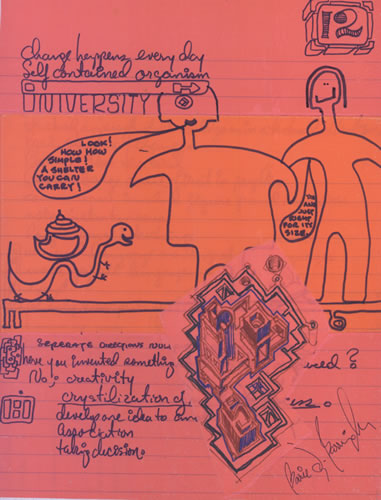 12
change happens every day
Self contained organism
UNIVERSITY
LOOK!
HOW HOW
SIMPLE!
A SHELTER
YOU CAN
CARRY!
AND
JUST
RIGHT
FOR ITS
SIZE.
SEPERATE DIRECTIONS
have you invented something
No. creativity
crystilization of
develop one idea to an
association
taking decision.